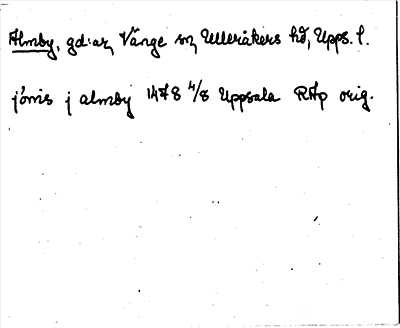 Almby, gd:ar, Vänge sn, Ulleråkers hd, Upps. l.
jönis j almby 1478 4/8 Uppsala RAp orig.